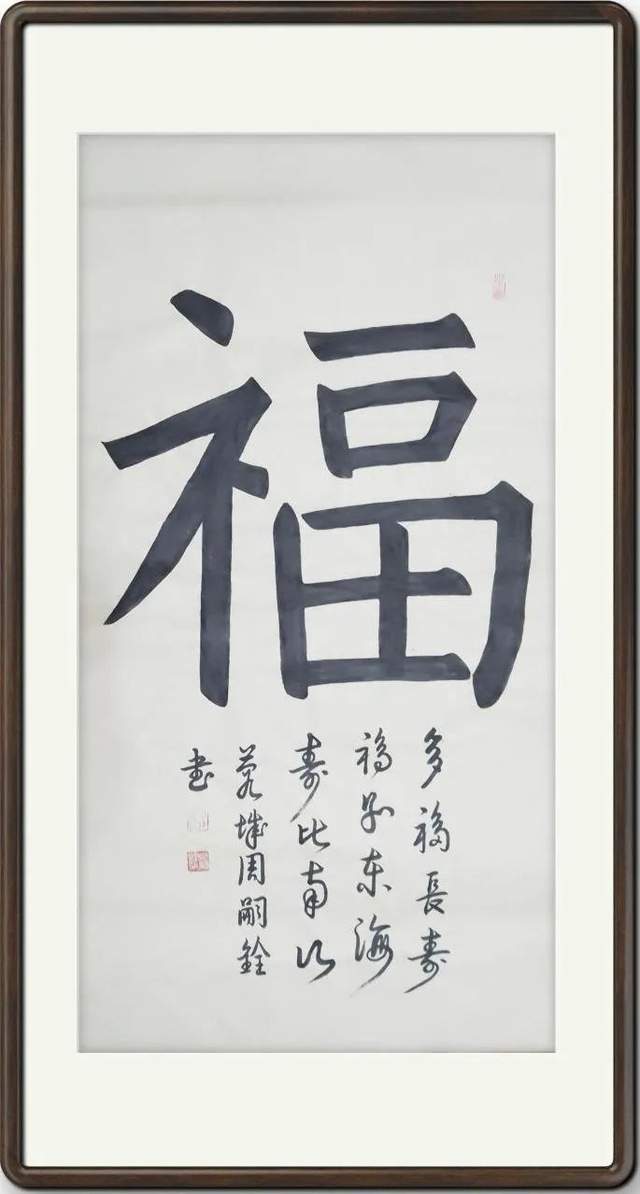 福
多福長寿
福如东海
寿比南山
蓉城周嗣銓
书